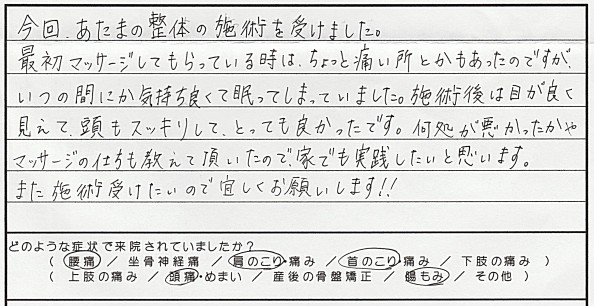 今回、あたまの整体の施術を受けました。
最初マッサージしてもらっている時は、ちょっと痛い所とかもあったのですが、
いつの間にか気持ち良くて眠ってしまっていました。施術後は目が良く
見えて、頭もスッキリして、とっても良かったです。何処が悪かったかや
マッサージの仕方も教えて頂いたので、家でも実践したいと思います。
また施術受けたいので宜しくお願いします!!
どのような症状で来院されていましたか?
( 腰痛 / 坐骨神経痛 / 肩のこり・痛み / 首のこり・痛み / 下肢の痛み )
( 上肢の痛み / 頭痛・めまい / 産後の骨盤矯正 / 腸もみ / その他 )